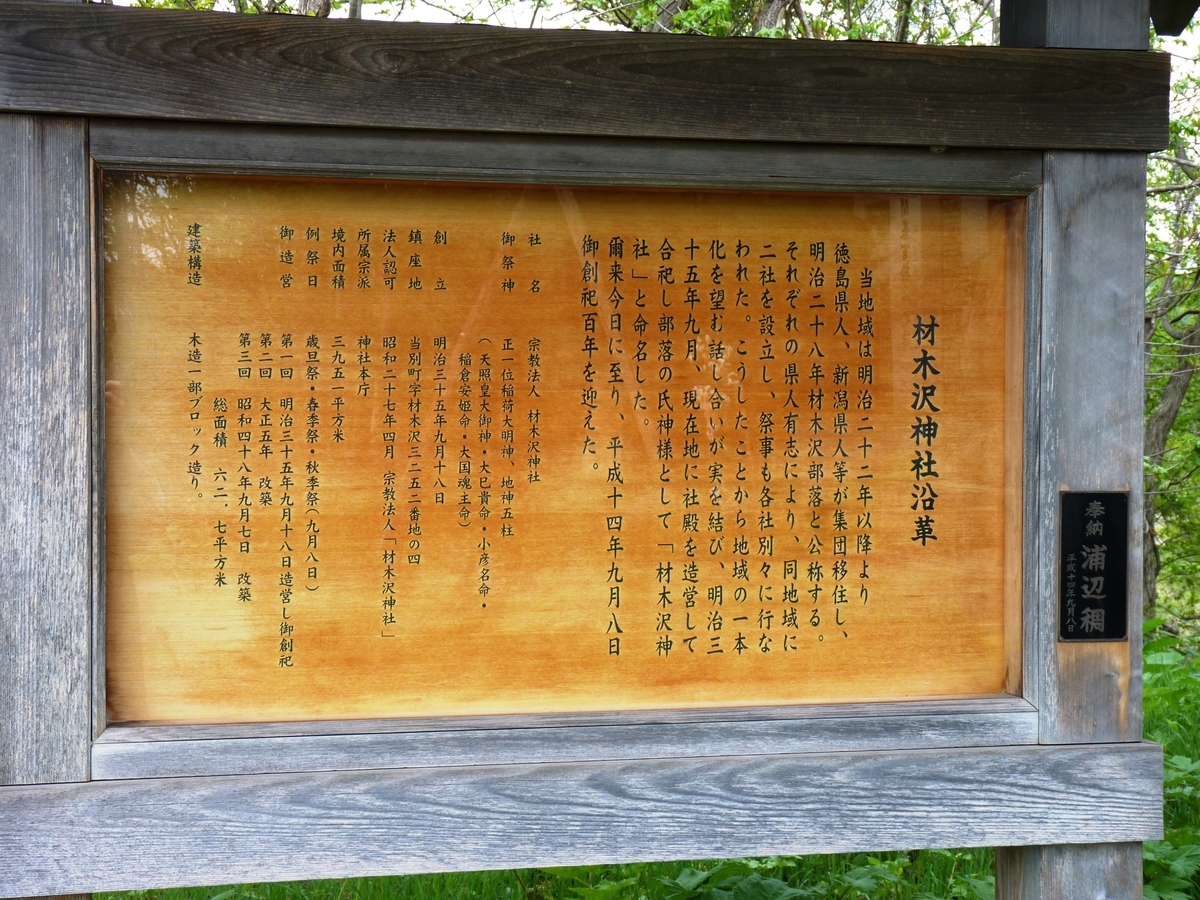 材木沢神社沿革
当地域は明治二十二年以降より
徳島県人、新潟県人等が集団移住し、
明治二十八年材木沢部落と公称する。
それぞれの県人有志により、同地域に
二社を設立し、祭事も各社別々に行な
われた。こうしたことから地域の一本
化を望む話し合いが実を結び、明治三
十五年九月、現在地に社殿を造営して
合祀し部落の氏神様として「材木沢神
社」と命名した。
爾来今日に至り、平成十四年九月八日
御創祀百年を迎えた。
社名 宗教法人 材木沢神社
御祭神 正一位稲荷大明神、地神五柱
(天照皇大御神・大巳貴命・小彦名命・
稲倉安姫命・大国魂主命)
創立 明治三十五年九月十八日
鎮座地 当別町字材木沢三二五二番地の四
法人認可 昭和二十七年四月 宗教法人「材木沢神社」
所属宗派 神社本庁
境内面積 三九五一平方米
例祭日 歳旦祭・春季祭・秋季祭(九月八日)
御造営 第一回 明治三十五年九月十八日造営し御創祀
第二回 大正五年 改築
第三回 昭和四十八年九月七日 改築
総面積 六二．七平方米
建築構造 木造一部ブロック造り。
奉納 浦辺 稠
平成十四年九月八日